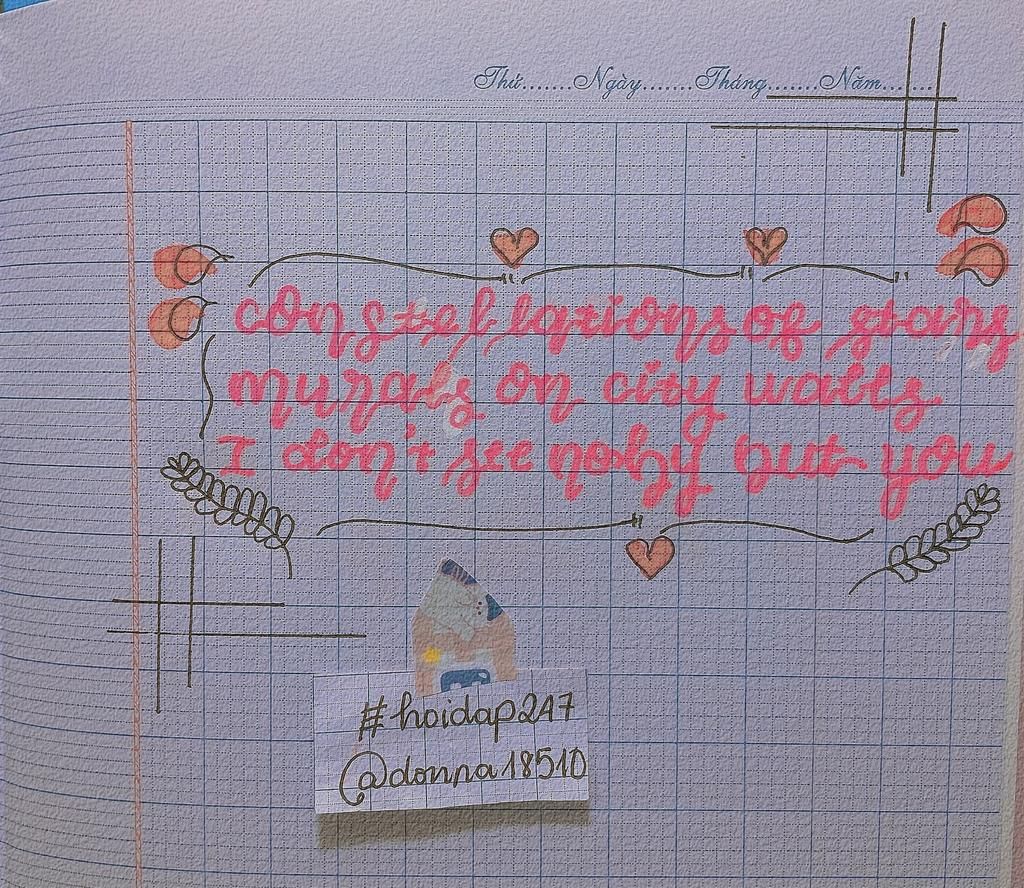 Thứ.......Ngày.......Tháng.......Năm.......
constellations of stars
murals on city walls
I don't see noby but you
#hoidap247
@donna18510